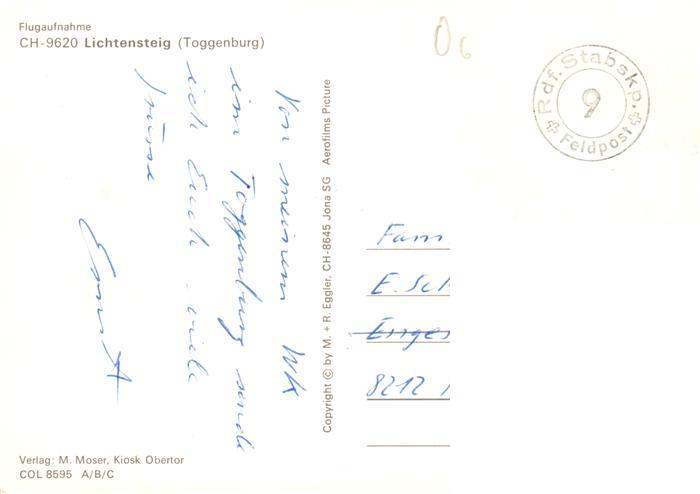 Flugaufnahme
CH-9620 Lichtensteig (Toggenburg)
06
Rdf. Stabskp.
9
Feldpost
Von meinem WK
im Toggenburg sende
ich Euch viele
Grüsse
Ernst
Copyright © by M. + R. Eggler, CH-8645 Jona SG Aerofilms Picture
Fam
E. Sch
Enges
8212
Verlag: M. Moser, Kiosk Obertor
COL 8595 A/B/C